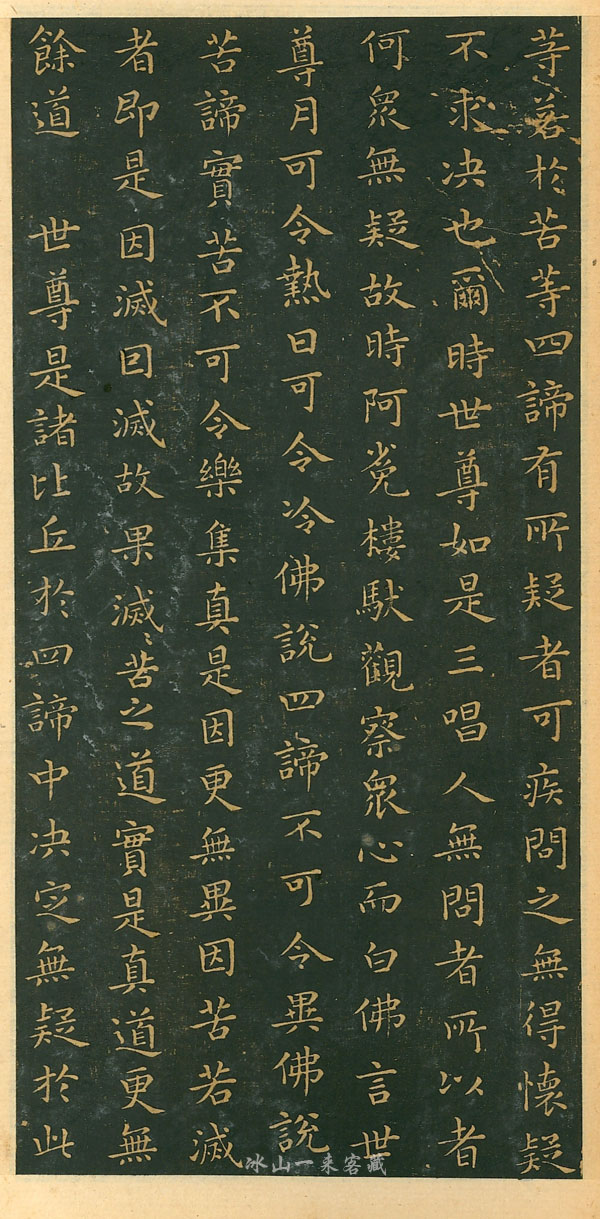 等若於苦等四諦有所疑者可疾問之無得懷疑
不求决也爾時世尊如是三唱人無問者所以者
何眾無疑故時阿㝹樓馱觀察眾心而白佛言世
尊月可令熱日可令冷佛說四諦不可令異佛說
苦諦實苦不可令樂集真是因更無異因苦若滅
者即是因滅因滅故果滅滅苦之道實是真道更無
餘道 世尊是諸比丘於四諦中决定無疑於此
冰山一来客藏